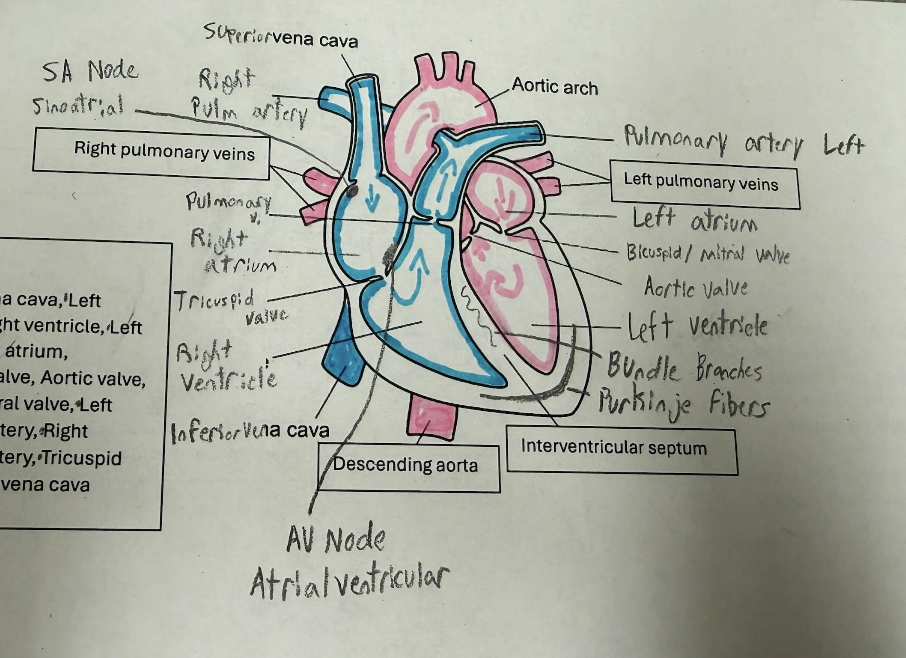 Superior vena cava
SA Node
Sinoatrial
Right
Pulm artery
Aortic arch
Pulmonary artery Left
Right pulmonary veins
Left pulmonary veins
Pulmonary
v.
Left atrium
Right
atrium
Bicuspid/mitral valve
Aortic valve
Tricuspid
valve
Left ventricle
Right
Ventricle
Bundle Branches
Purkinje Fibers
Inferior vena cava
Interventricular septum
Descending aorta
a cava, Left
ght ventricle, Left
atrium,
alve, Aortic valve,
ral valve, Left
tery, Right
tery, Tricuspid
vena cava
AV Node
Atrial ventricular